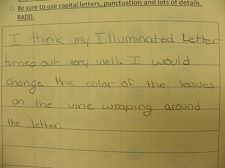 □ Be sure to use capital letters, punctuation and lots of details.
RADD.
I think my Illuminated Letter
turned out very well. I would
change the color of the leaves
on the vine wraping around
the letter.